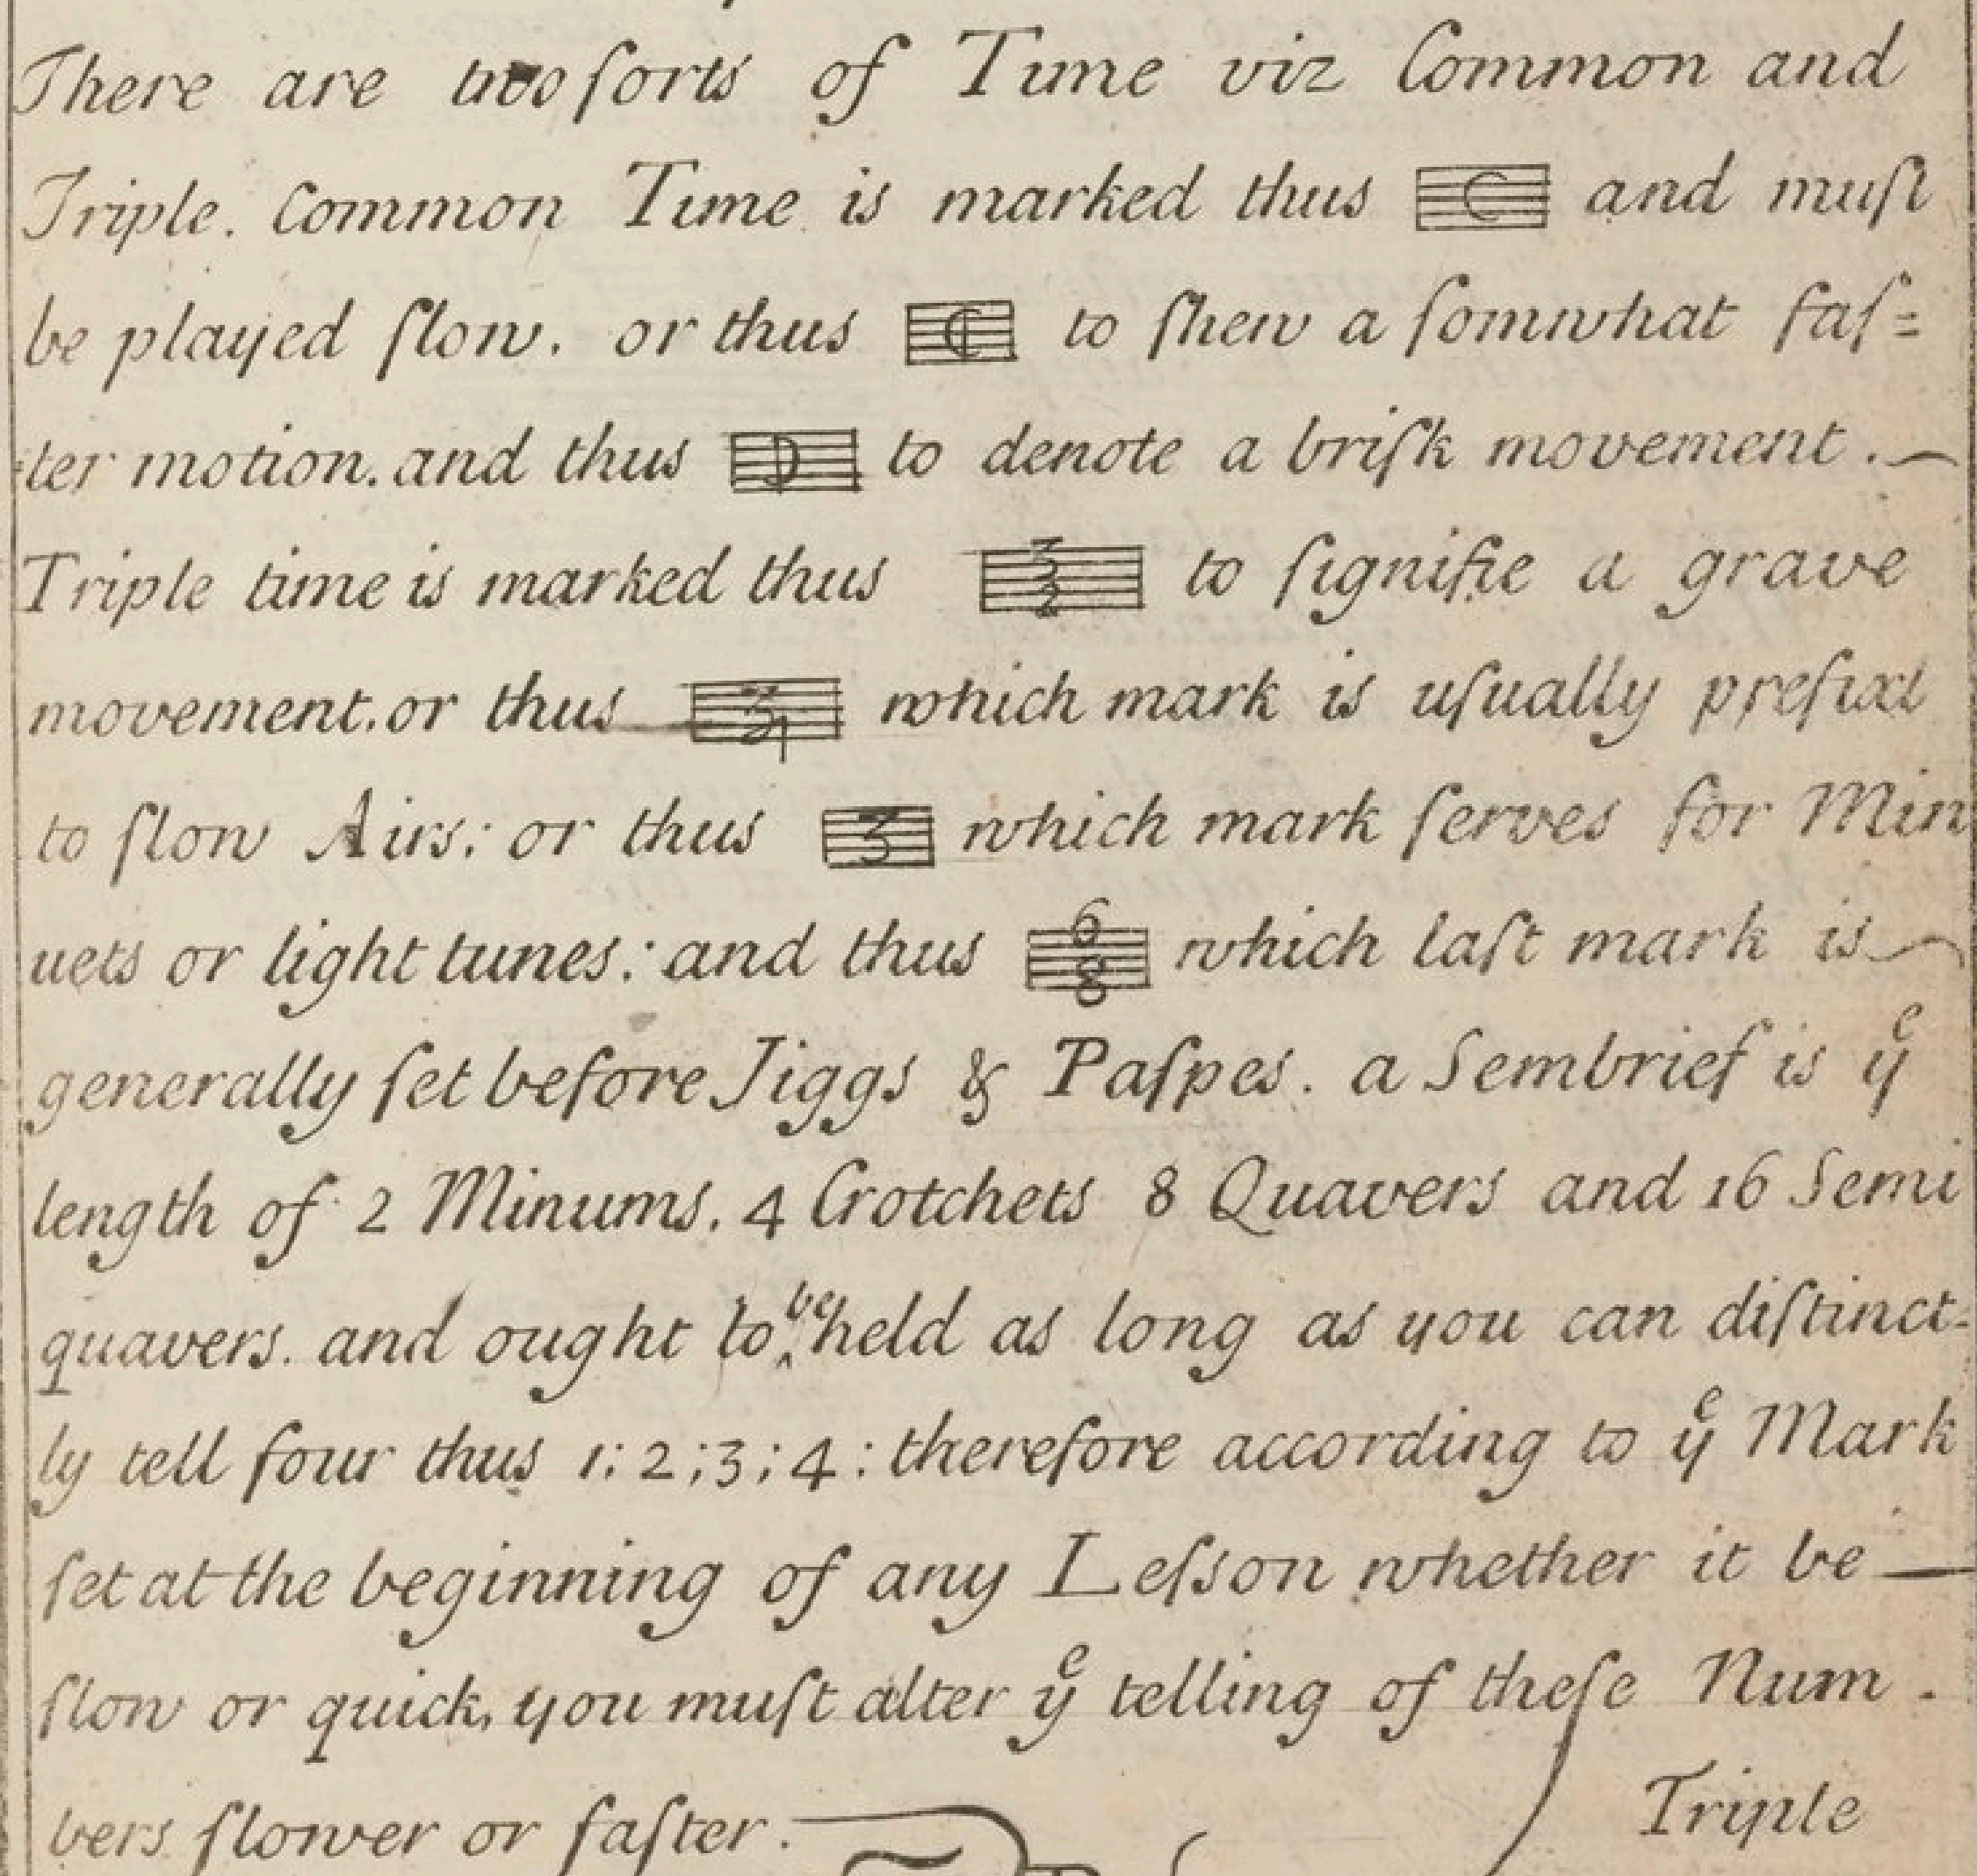 There are two ſorts of Time viz Common and
Triple. Common Time is marked thus C and muſt
be played ſlow. or thus ¢ to ſhew a ſomwhat faſ=
=ter motion. and thus Ɔ to denote a briſk movement.
Triple time is marked thus 3/2 to ſignifie a grave
movement. or thus 3 which mark is uſually prefixt
to ſlow Airs: or thus 3 which mark ſerves for Min
uets or light tunes: and thus 6/8 which laſt mark is
generally ſet before Jiggs & Paſpes. a Sembrief is yᵉ
length of 2 Minums. 4 Crotchets 8 Quavers and 16 Semi
quavers. and ought to ‸be held as long as you can diſtinct-
ly tell four thus 1; 2; 3; 4: therefore according to yᵉ Mark
ſet at the beginning of any Leſson whether it be
ſlow or quick, you muſt alter yᵉ telling of theſe Num.
bers ſlower or faſter.
Triple